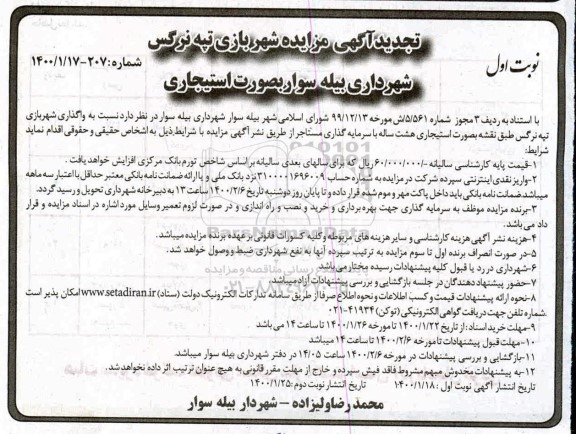 تجدید آگهی مزایده شهربازی تپه نرگس
شهرداری بیله سوار بصورت استیجاری
نوبت اول
شماره: ۲۰۷-۱۴۰۰/۱/۱۷
با استناد به ردیف ۳ مجوز شماره ۵/۵۶۱/ش مورخه ۹۹/۱۲/۱۳ شورای اسلامی شهر بیله سوار شهرداری بیله سوار در نظر دارد نسبت به واگذاری شهربازی
تپه نرگس طبق نقشه بصورت استیجاری هشت ساله با سرمایه گذاری مستاجر از طریق نشر آگهی مزایده با شرایط ذیل به اشخاص حقیقی و حقوقی اقدام نماید
شرایط:
۱-قیمت پایه کارشناسی سالیانه -/۶۰/۰۰۰/۰۰۰ ریال که برای سالهای بعدی سالیانه بر اساس شاخص تورم بانک مرکزی افزایش خواهد یافت .
۲-واریز نقدی اینترنتی سپرده شرکت در مزایده به شماره حساب ۳۱۰۰۰۰۱۶۹۶۰۰۹ نزد بانک ملی و یا ارائه ضمانت نامه بانکی معتبر حداقل با اعتبار سه ماهه
میباشد ضمانت نامه بانکی باید داخل پاکت مهر و موم شده قرار داده و تا پایان روز دوشنبه تاریخ ۱۴۰۰/۲/۶ ساعت ۱۳ به دبیرخانه شهرداری تحویل و رسید گردد.
۳-برنده مزایده موظف به سرمایه گذاری جهت بهره برداری و خرید و نصب و راه اندازی و در صورت لزوم تعمیر وسایل مورد اشاره در اسناد مزایده و قرار
داد می باشد.
۴-هزینه نشر آگهی هزینه کارشناسی و سایر هزینه های مربوطه و کلیه کسورات قانونی بر عهده برنده مزایده میباشد.
۵-در صورت انصراف برنده اول تا سوم مزایده به ترتیب سپرده آنها به نفع شهرداری ضبط و وصول خواهد شد.
۶-شهرداری در رد یا قبول کلیه پیشنهادات رسیده مختار می باشد
۷-حضور پیشنهاد دهندگان در جلسه بازگشایی و بررسی پیشنهادات آزاد میباشد
۸-نحوه ارائه پیشنهادات قیمت و کسب اطلاعات و نحوه اطلاع صرفا از طریق سامانه تدارکات الکترونیک دولت (ستاد) www.setadiran.ir امکان پذیر است
.شماره تلفن جهت دریافت گواهی الکترونیکی (توکن) ۴۱۹۳۴-۰۲۱
۹-مهلت خرید اسناد: از تاریخ ۱۴۰۰/۱/۲۲ تا مورخه ۱۴۰۰/۱/۲۶ تا ساعت ۱۴ می باشد
۱۰-مهلت قبول پیشنهادات تا مورخه ۱۴۰۰/۲/۶ تا ساعت ۱۴ میباشد
۱۱-بازگشایی و بررسی پیشنهادات در مورخه ۱۴۰۰/۲/۶ ساعت ۱۴/۰۵ در دفتر شهرداری بیله سوار میباشد.
۱۲-به پیشنهادات مخدوش مبهم مشروط فاقد فیش سپرده و خارج از مهلت مقرر قانونی به هیچ عنوان ترتیب اثر داده نخواهد شد.
تاریخ انتشار آگهی نوبت اول : ۱۴۰۰/۱/۱۸ تاریخ انتشار نوبت دوم : ۱۴۰۰/۱/۲۵
محمدرضا ولیزاده – شهردار بیله سوار